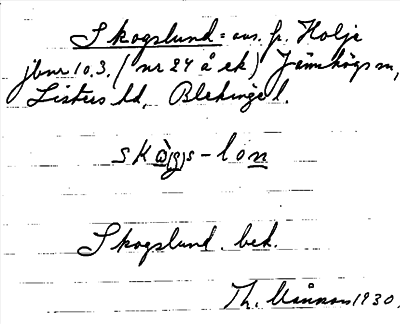 Skogslund = avs. fr. Holje
jbnr 10.3. (nr 24 å ek) Jämshögs sn,
Listers hd, Blekinge l.
skò(g)s-lon
Skogslund. bek.
Th. Månsson 1930.